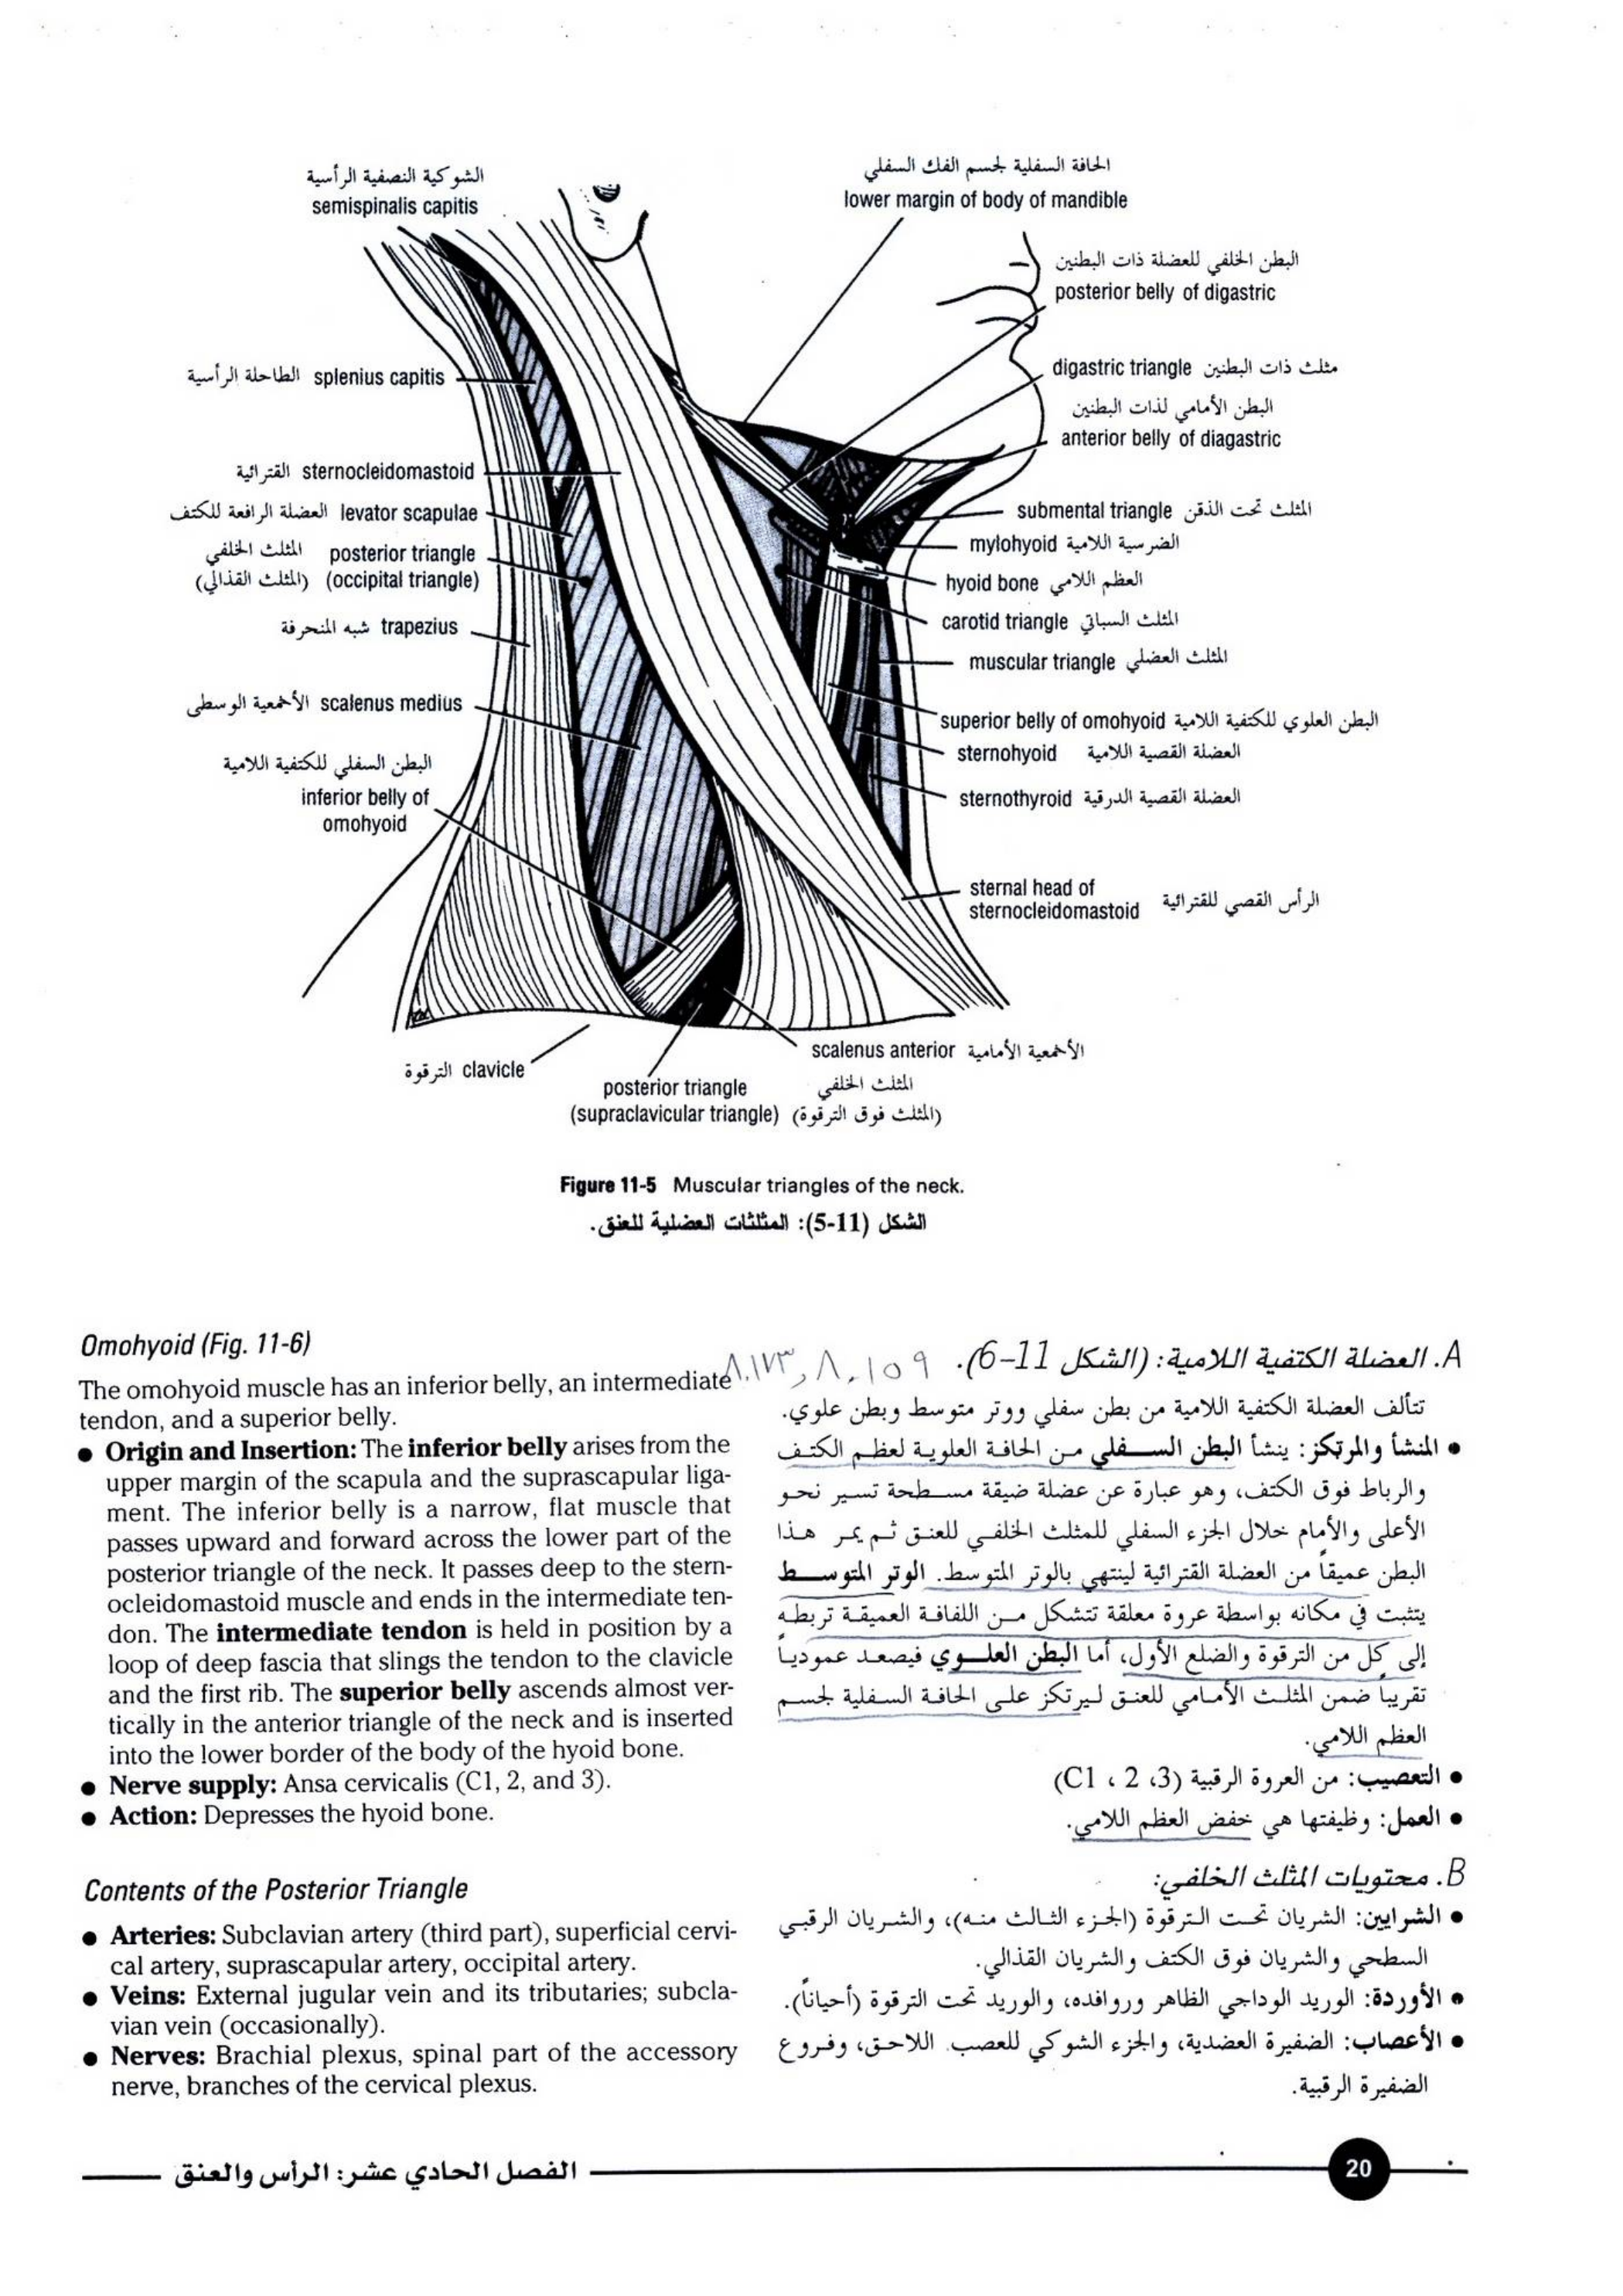 الشوكية النصفية الرأسية
semispinalis capitis
الحافة السفلية لجسم الفك السفلي
lower margin of body of mandible
البطن الخلفي للعضلة ذات البطنين
posterior belly of digastric
الطاحلة الرأسية splenius capitis
digastric triangle مثلث ذات البطنين
البطن الأمامي لذات البطنين
anterior belly of diagastric
القترائية sternocleidomastoid
العضلة الرافعة للكتف levator scapulae
submental triangle المثلث تحت الذقن
mylohyoid الضرسية اللامية
المثلث الخلفي posterior triangle
(المثلث القذالي) (occipital triangle)
hyoid bone العظم اللامي
carotid triangle المثلث السباتي
شبه المنحرفة trapezius
muscular triangle المثلث العضلي
الأخمعية الوسطى scalenus medius
superior belly of omohyoid البطن العلوي للكتفية اللامية
sternohyoid العضلة القصية اللامية
البطن السفلي للكتفية اللامية
inferior belly of
omohyoid
sternothyroid العضلة القصية الدرقية
sternal head of
sternocleidomastoid الرأس القصي للقترائية
scalenus anterior الأخمعية الأمامية
الترقوة clavicle
posterior triangle المثلث الخلفي
(supraclavicular triangle) (المثلث فوق الترقوة)
Figure 11-5 Muscular triangles of the neck.
الشكل (11-5): المثلثات العضلية للعنق.
Omohyoid (Fig. 11-6)
The omohyoid muscle has an inferior belly, an intermediate
tendon, and a superior belly.
● Origin and Insertion: The inferior belly arises from the
upper margin of the scapula and the suprascapular liga-
ment. The inferior belly is a narrow, flat muscle that
passes upward and forward across the lower part of the
posterior triangle of the neck. It passes deep to the stern-
ocleidomastoid muscle and ends in the intermediate ten-
don. The intermediate tendon is held in position by a
loop of deep fascia that slings the tendon to the clavicle
and the first rib. The superior belly ascends almost ver-
tically in the anterior triangle of the neck and is inserted
into the lower border of the body of the hyoid bone.
● Nerve supply: Ansa cervicalis (C1, 2, and 3).
● Action: Depresses the hyoid bone.
Contents of the Posterior Triangle
● Arteries: Subclavian artery (third part), superficial cervi-
cal artery, suprascapular artery, occipital artery.
● Veins: External jugular vein and its tributaries; subcla-
vian vein (occasionally).
● Nerves: Brachial plexus, spinal part of the accessory
nerve, branches of the cervical plexus.
A. العضلة الكتفية اللامية: (الشكل 11-6).
تتألف العضلة الكتفية اللامية من بطن سفلي ووتر متوسط وبطن علوي.
● المنشأ والمرتكز: ينشأ البطن السفلي من الحافة العلوية لعظم الكتف
والرباط فوق الكتف، وهو عبارة عن عضلة ضيقة مسطحة تسير نحو
الأعلى والأمام خلال الجزء السفلي للمثلث الخلفي للعنق ثم يمر هذا
البطن عميقاً من العضلة القترائية لينتهي بالوتر المتوسط. الوتر المتوسط
يتثبت في مكانه بواسطة عروة معلقة تتشكل من اللفافة العميقة تربطه
إلى كل من الترقوة والضلع الأول، أما البطن العلوي فيصعد عمودياً
تقريباً ضمن المثلث الأمامي للعنق ليرتكز على الحافة السفلية لجسم
العظم اللامي.
● التعصيب: من العروة الرقبية (C1 ، 2 ،3)
● العمل: وظيفتها هي خفض العظم اللامي.
B. محتويات المثلث الخلفي:
● الشرايين: الشريان تحت الترقوة (الجزء الثالث منه)، والشريان الرقبي
السطحي والشريان فوق الكتف والشريان القذالي.
● الأوردة: الوريد الوداجي الظاهر وروافده، والوريد تحت الترقوة (أحياناً).
● الأعصاب: الضفيرة العضدية، والجزء الشوكي للعصب اللاحق، وفروع
الضفيرة الرقبية.
الفصل الحادي عشر: الرأس والعنق
20